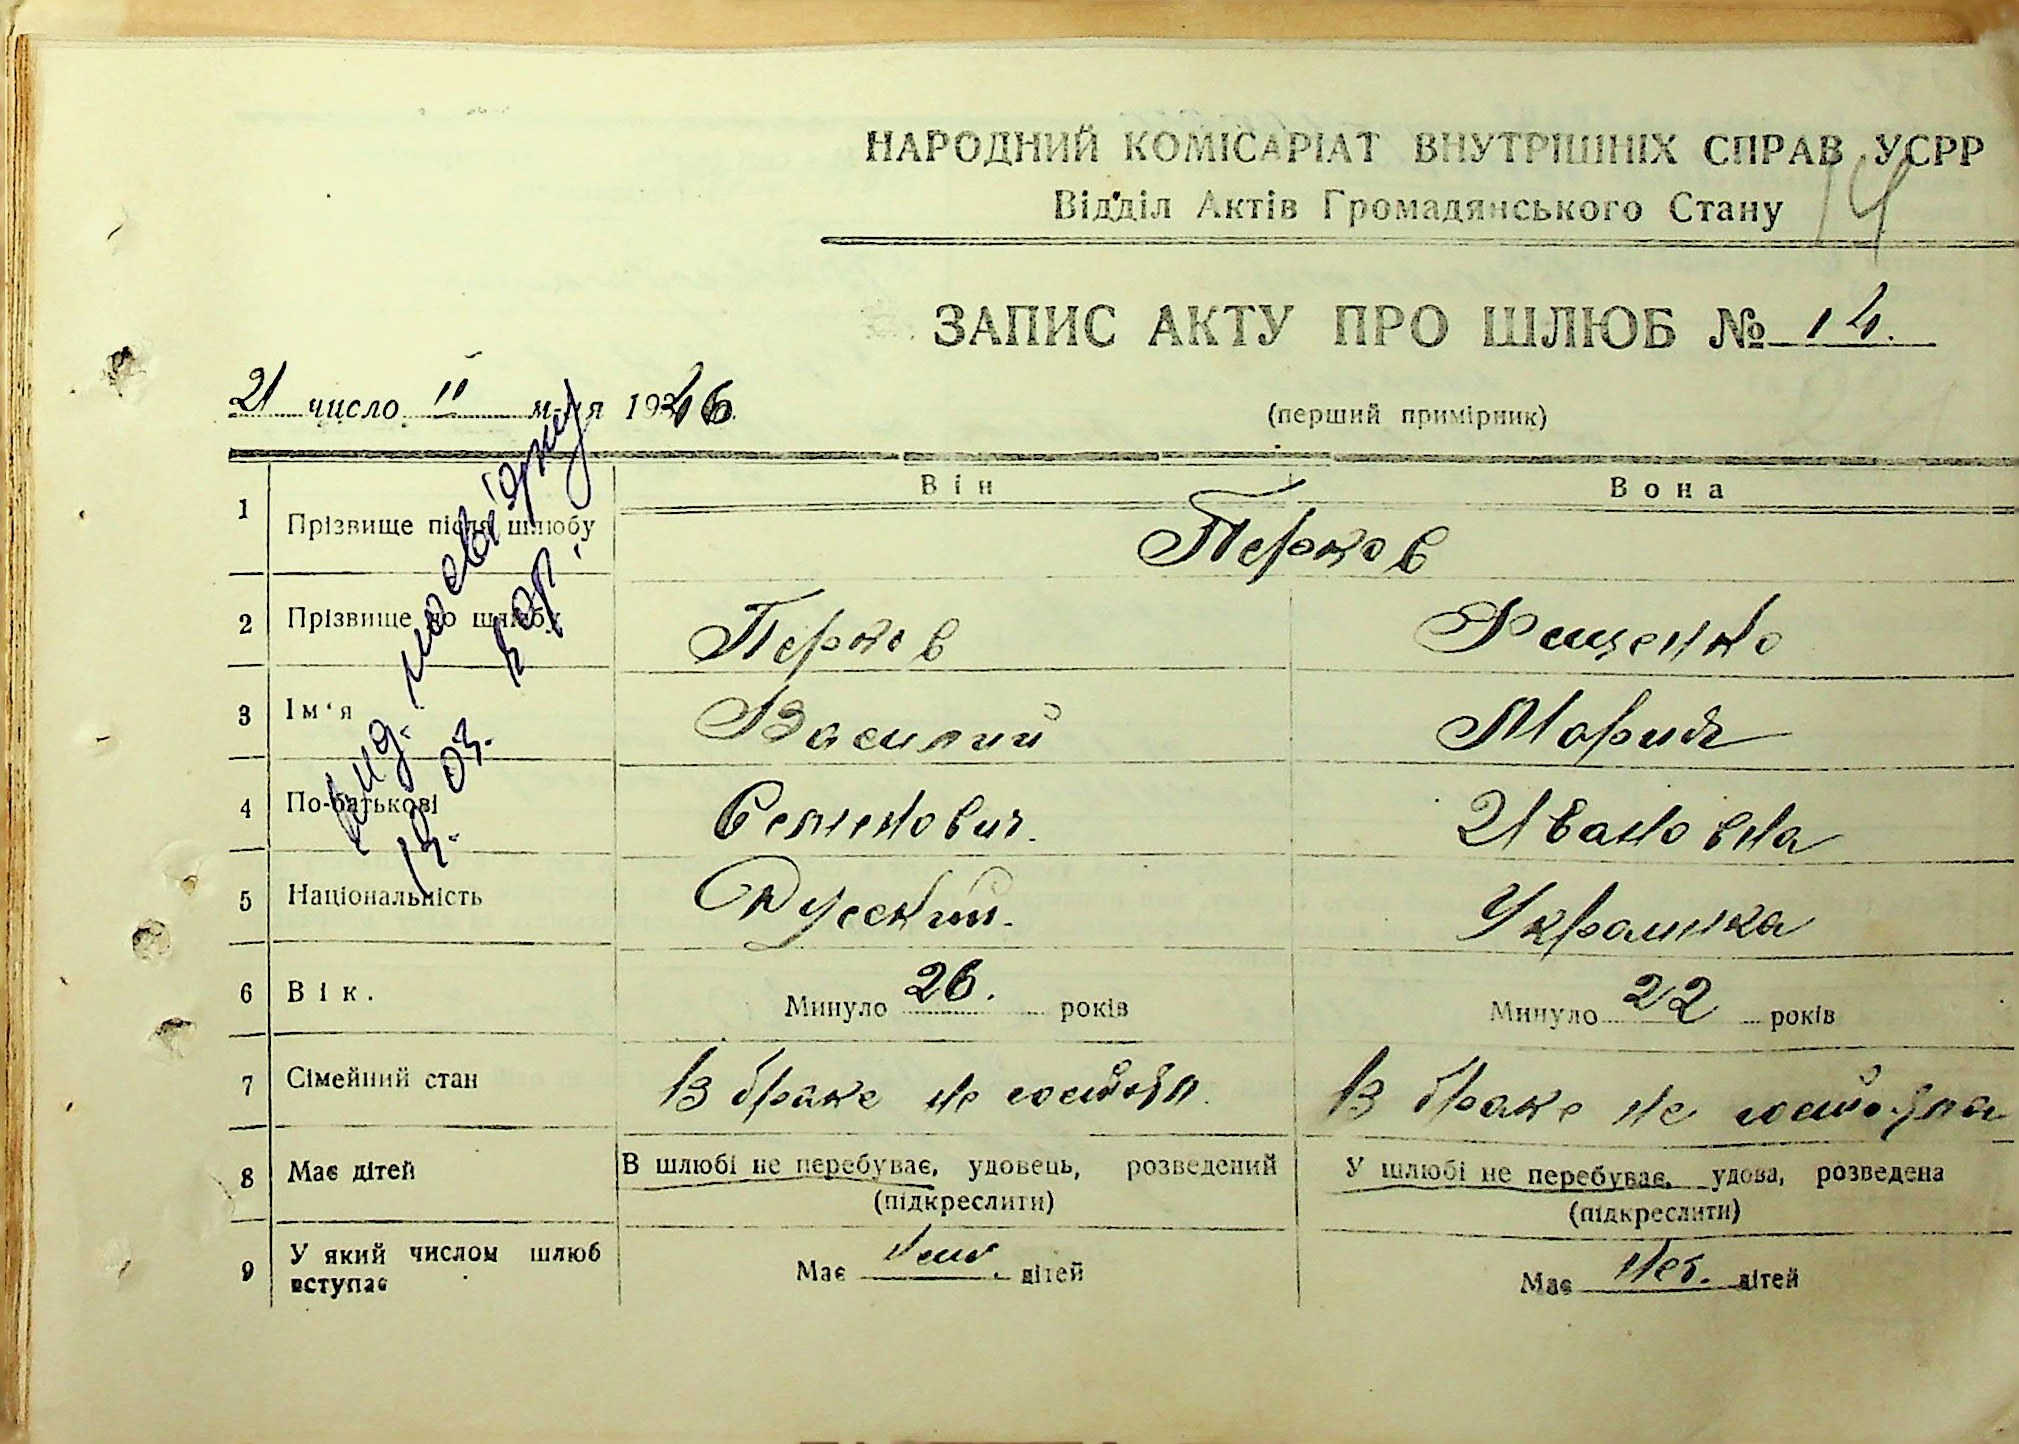 НАРОДНИЙ КОМІСАРІАТ ВНУТРІШНІХ СПРАВ УСРР
Відділ Актів Громадянського Стану
14
ЗАПИС АКТУ ПРО ШЛЮБ № 14.
21 число II м-ця 1946
(перший примірник)
Він Вона
1 Прізвище після шлюбу Перков
2 Прізвище до шлюбу Перков Фещенко
3 Ім'я Василий Мария
4 По-батькові Семенович. Ивановна
5 Національність Русский. Украинка
6 Вік. Минуло 26. років Минуло 22 років
7 Сімейний стан В браке не состоял. В браке не состояла
8 Має дітей В шлюбі не перебуває, удовець, розведений У шлюбі не перебуває, удова, розведена
(підкреслити) (підкреслити)
9 У який числом шлюб вступає Має Нет. дітей Має Нет. дітей
03.